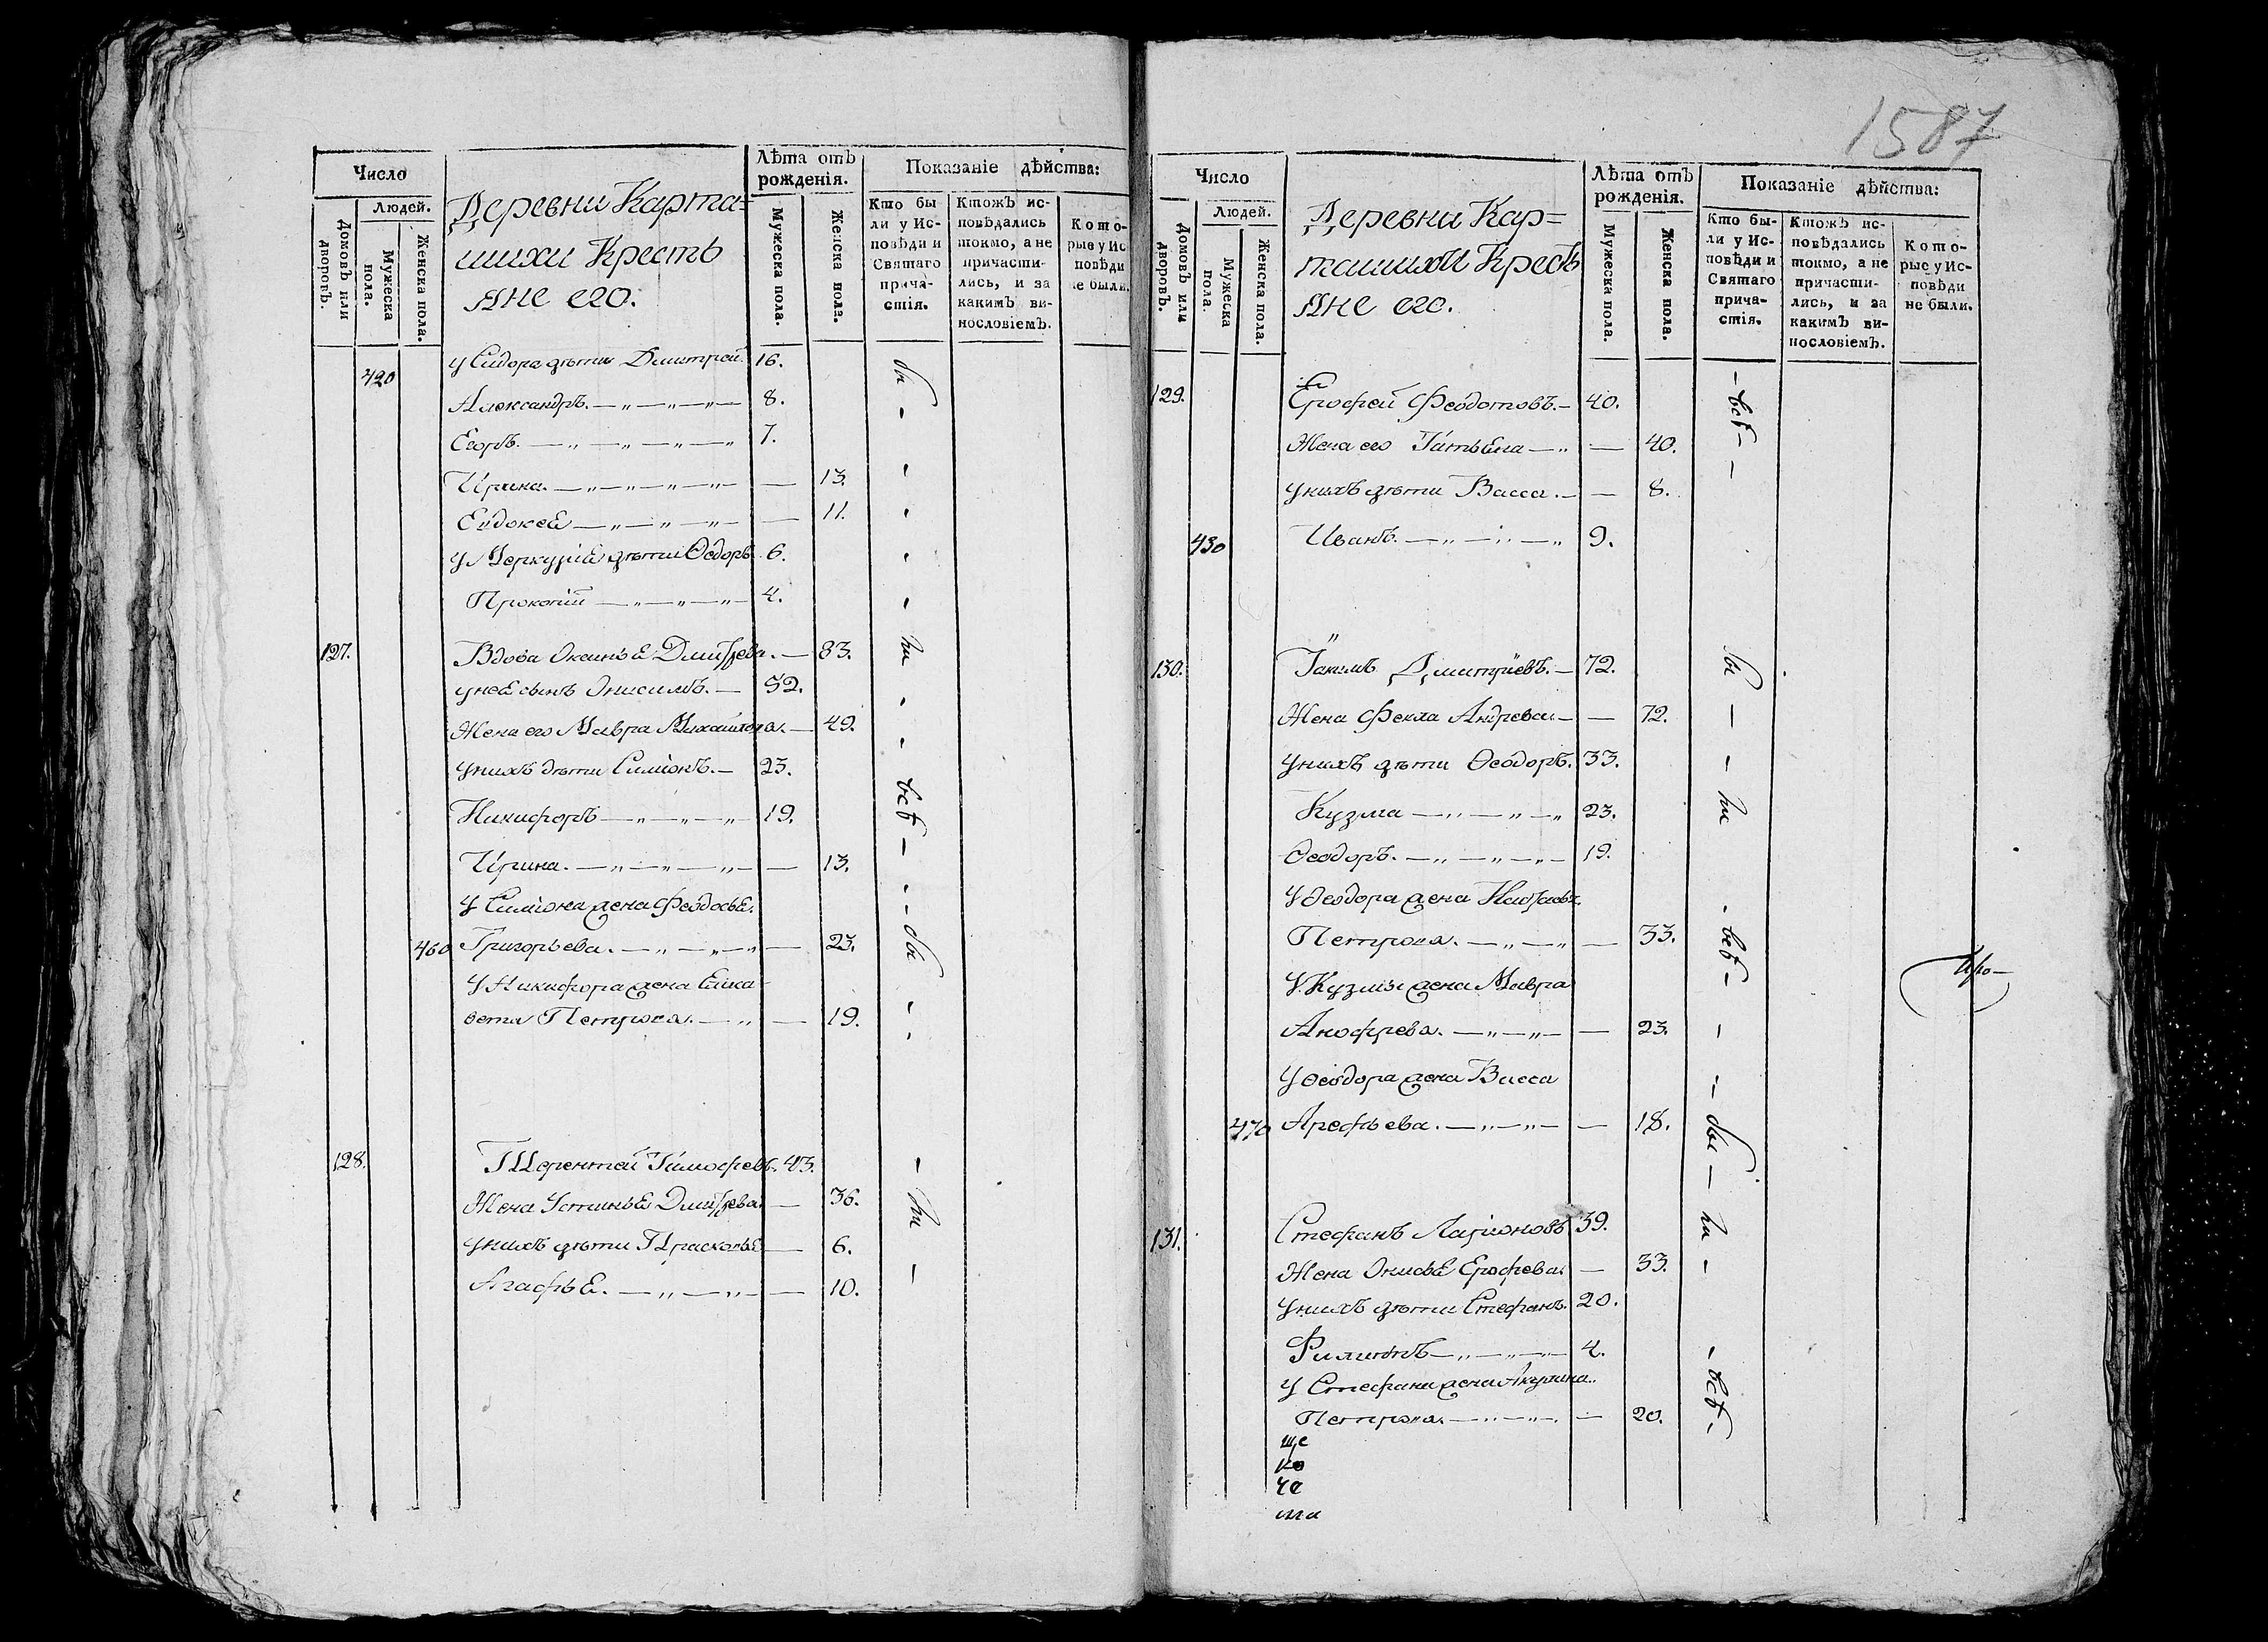 Число
Людей.
Домовъ или дворовъ.
Мужеска пола.
Женска пола.
Деревни Карта=
шихи Кресть
яне его.
Лѣта отъ рожденія.
Мужеска пола.
Женска пола.
Показаніе дѣйства:
Кто бы-
ли у Ис-
повѣди и
Святаго
прича-
стія.
Ктожъ ис-
повѣдались
токмо, а не
причасти-
лись, и за
какимъ ви-
нословіемъ.
Кото-
рые у Ис
повѣди
не были.
420 у Сидора дѣти Дмитрей. 16.
Александръ. — „ — „ — „ — 8.
Егоръ. — „ — „ — „ — „ 7.
Ирина. — „ — „ — „ — „ — — 13.
Евдокея — „ — „ — „ — — 11.
у Меркурія дѣти Ѳедоръ. 6.
Прокопій — „ — „ — „ — 4.
127. Вдова Оксинья Дмитрева. — 83.
у нея сынъ Онисимъ. — 52.
Жена его Мавра Михайлова. — 49.
у нихъ дѣти Симіонъ. — 23.
Никифоръ — „ — „ — „ 19.
Ирина. — „ — „ — „ — — 13.
У Симіона жена Феодосья
460 Григорьева. — „ — „ — „ — 23.
У Никифора жена Елиса
вета Петрова. — „ — 19.
128. Терентей Тимофеевъ. 43.
Жена Устинья Дмитрева. — 36.
у нихъ дѣти Прасковья — 6.
Агафья. — „ — „ — — 10.
бы
ли
всѣ
бы
ли
1587
Число
Людей.
Домовъ или дворовъ.
Мужеска пола.
Женска пола.
Деревни Кар=
ташихи Кресть
яне его.
Лѣта отъ рожденія.
Мужеска пола.
Женска пола.
Показаніе дѣйства:
Кто бы-
ли у Ис-
повѣди и
Святаго
прича-
стія.
Ктожъ ис-
повѣдались
токмо, а не
причасти-
лись, и за
какимъ ви-
нословіемъ.
Кото-
рые у Ис-
повѣди
не были.
129. Ерофей Феодотовъ. — 40.
Жена его Татьяна — „ — 40.
у нихъ дѣти Васса. — — 8.
430 Иванъ. — „ — „ — „ 9.
130. Іакимъ Димитріевъ. — 72.
Жена Фекла Андреева. — — 72.
у нихъ дѣти Ѳеодоръ. 33.
Кузма — „ — „ — „ 23.
Ѳеодоръ. — „ — „ — „ — 19.
У Ѳеодора жена
Петрова. — „ — „ — 33.
У Кузмы жена Мавра
Анофрева. — „ — „ — — 23.
У Ѳеодора жена Васса
470 Арефьева. — „ — „ — — 18.
131. Стефанъ Ларіоновъ 39.
Жена Онисья Ерофева. — 33.
у нихъ дѣти Стефанъ. 20.
Филиппъ — „ — „ — 4.
У Стефана жена Акулина.
Петрова. — „ — „ — — 20.
ще
ко
че
ма
всѣ
бы
ли
всѣ
бы
ли
всѣ